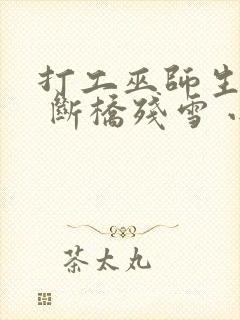 打工巫師生
斷橋殘雪
茶太丸